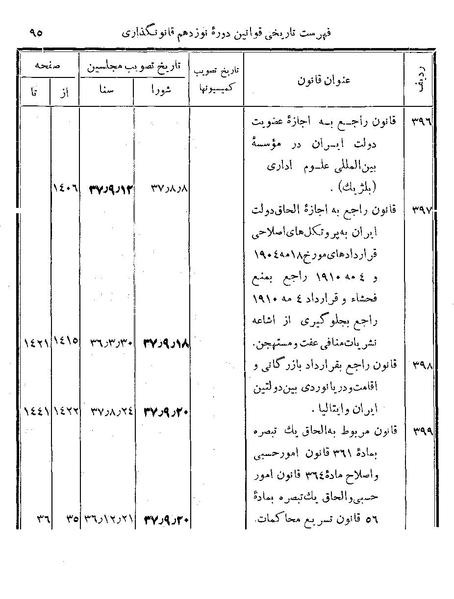 فهرست تاریخی قوانین دورهٔ نوزدهم قانونگذاری ۹۵
ردیف عنوان قانون تاریخ تصویب کمیسیونها تاریخ تصویب مجلسین صفحه
شورا سنا از تا
۳۹۶ قانون راجع به اجازهٔ عضویت
دولت ایران در مؤسسهٔ
بین‌المللی علوم اداری
(بلژیك). ۳۷٫۸٫۸ ۳۷٫۹٫۱۲ ۱۴۰۶
۳۹۷ قانون راجع به اجازهٔ الحاق‌دولت
ایران به‌پروتکل‌های‌اصلاحی
قراردادهای‌مورخ‌۱۸مه‌۱۹۰۴
و ۴ مه ۱۹۱۰ راجع بمنع
فحشاء و قرارداد ۴ مه ۱۹۱۰
راجع بجلوگیری از اشاعه
نشریات‌منافی‌عفت و مستهجن. ۳۷٫۹٫۱۸ ۳۶٫۳٫۳۰ ۱۴۱۵ ۱۴۲۱
۳۹۸ قانون راجع بقرارداد بازرگانی و
اقامت‌ودریانوردی بین‌دولتین
ایران وایتالیا. ۳۷٫۹٫۲۰ ۳۷٫۸٫۲۴ ۱۴۲۲ ۱۴۴۱
۳۹۹ قانون مربوط به‌الحاق یك تبصره
بمادهٔ ۳۶۱ قانون امورحسبی
واصلاح مادهٔ ۳۶۴ قانون امور
حسبی‌والحاق یك‌تبصره بمادهٔ
۵۶ قانون تسریع محاکمات. ۳۷٫۹٫۲۰ ۳۶٫۱۲٫۲۱ ۳۵ ۳۶